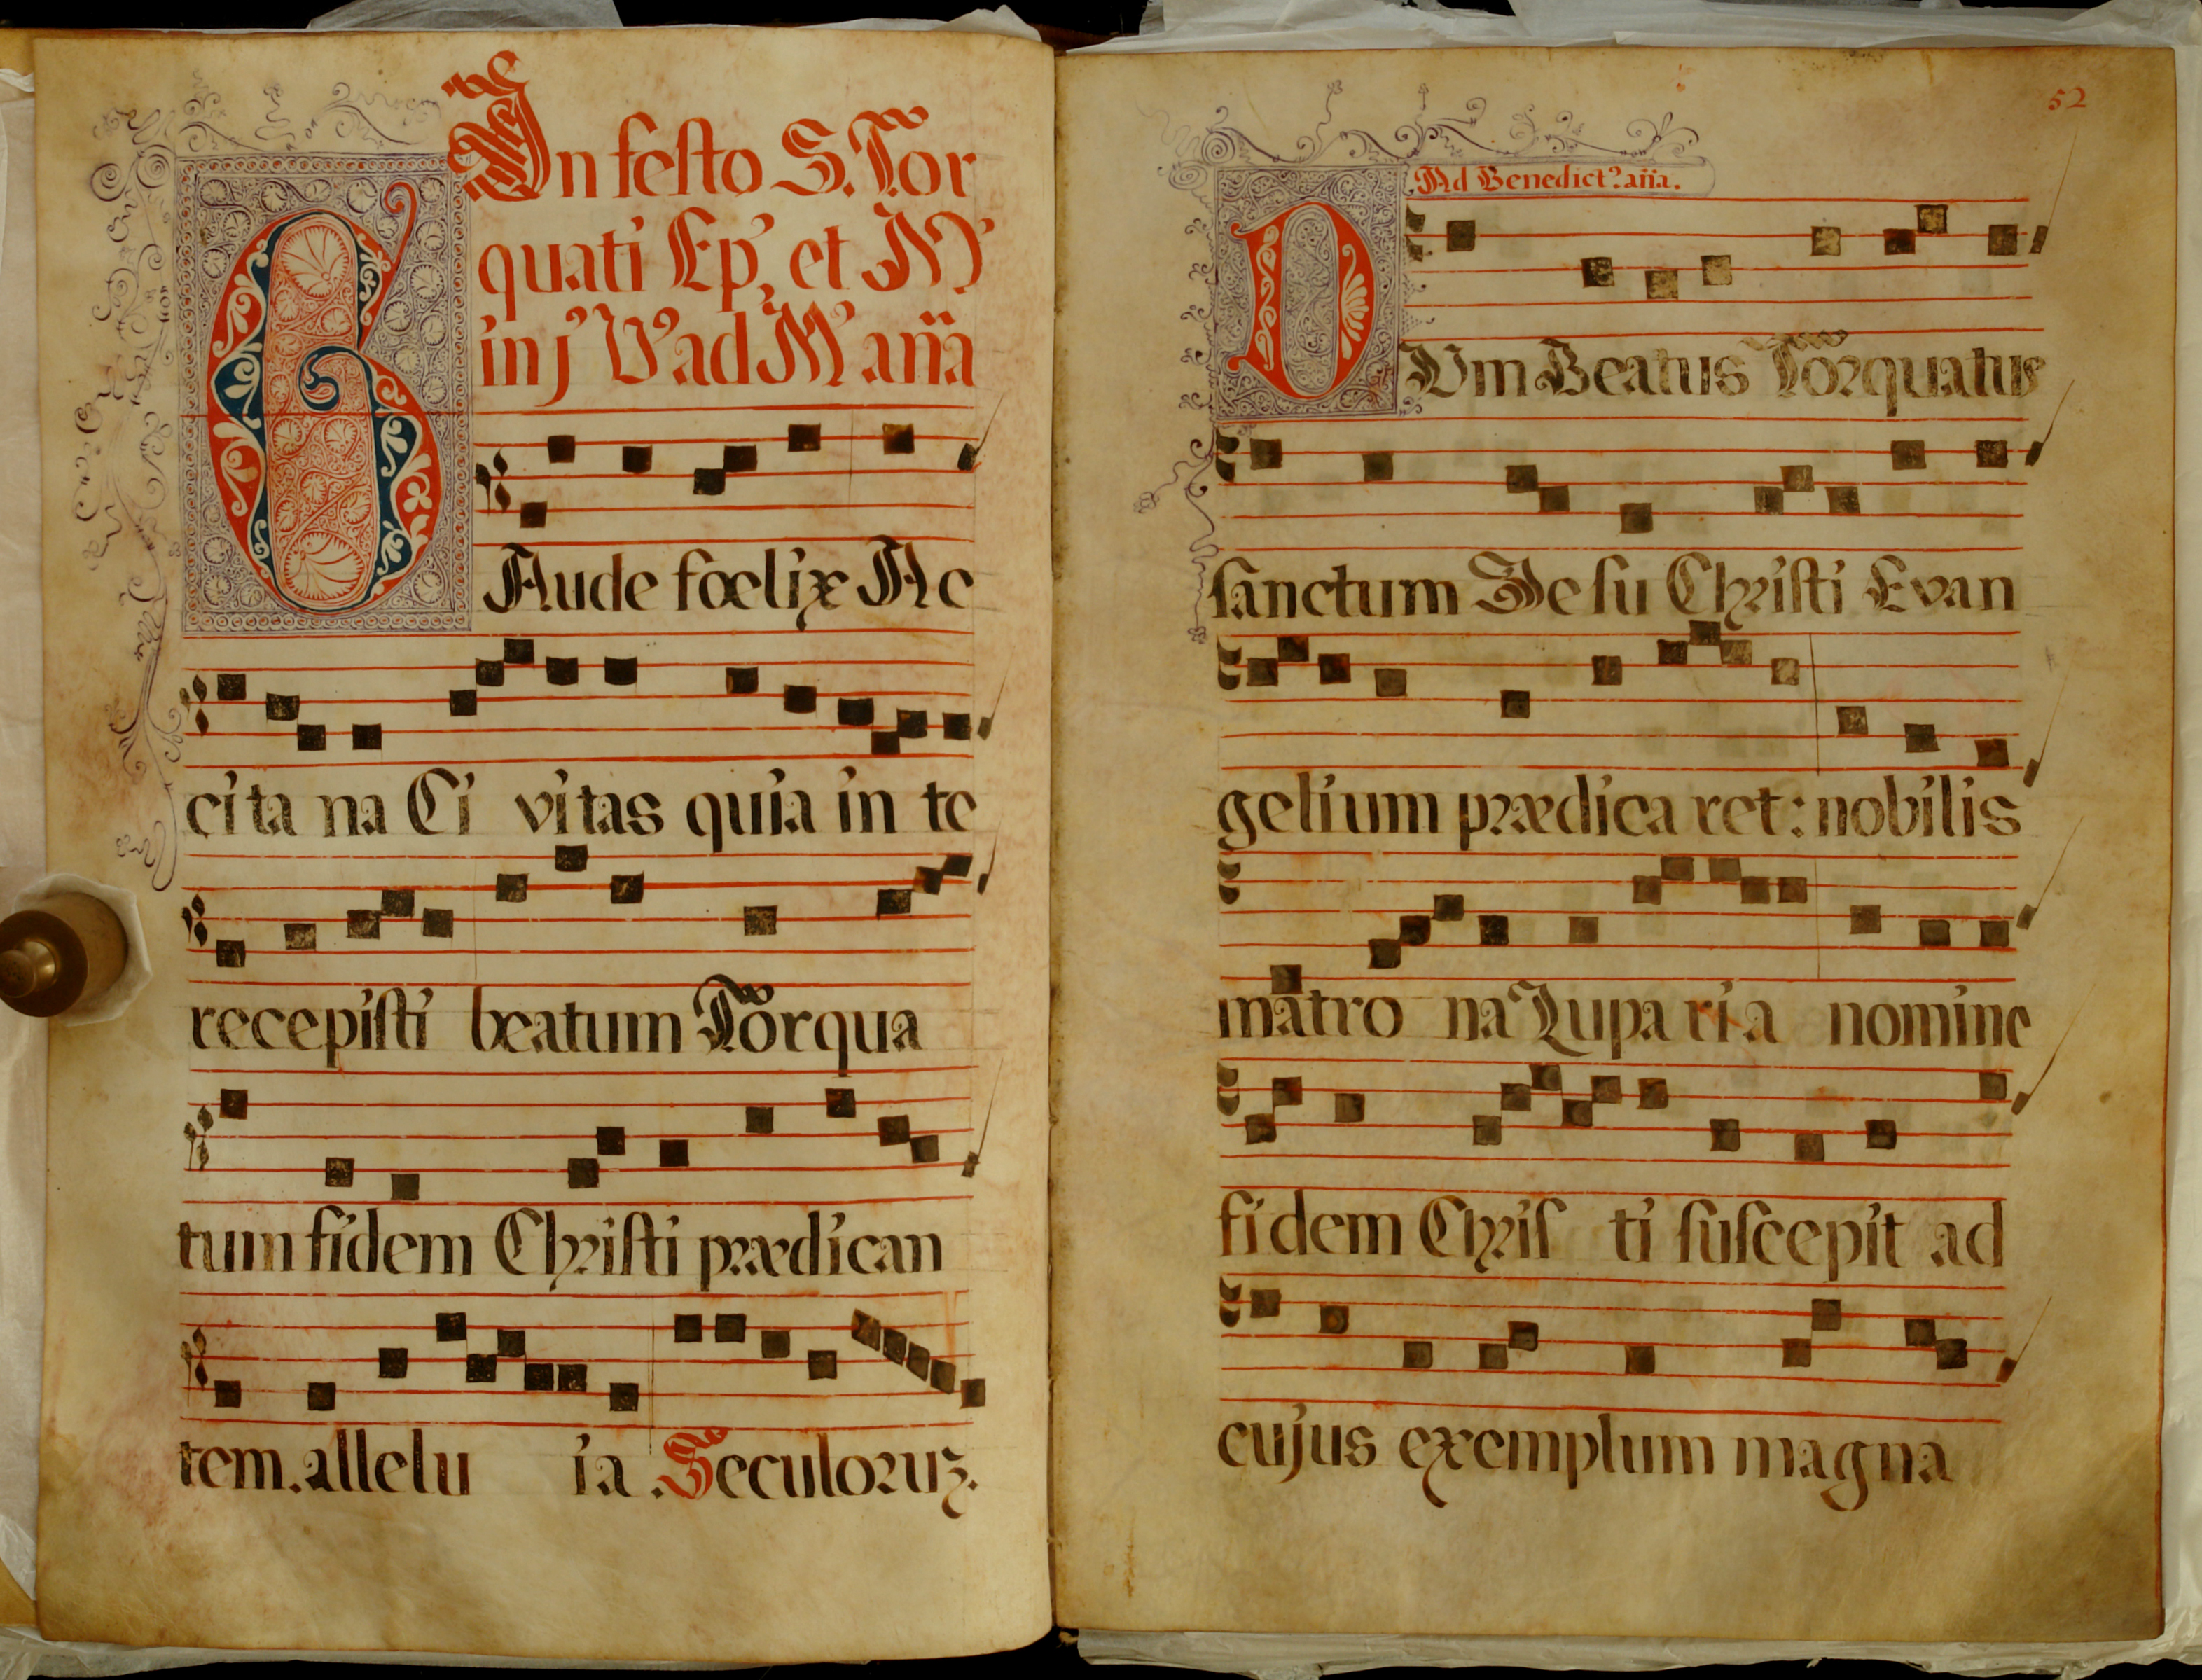 In festo S. Tor
quati Ep', et M'
in j' V' ad M' an̄a
GAude fœlix Ac
cita na Ci vitas quia in te
recepisti beatum Torqua
tum fidem Christi prædican
tem. allelu ia. Seculoruz.
52
Ad Benedict?. an̄a.
DUm Beatus Torquatus
sanctum Jesu Christi Evan
gelium prædica ret: nobilis
matro na Luparia nomine
fidem Chris ti suscepit ad
cujus exemplum magna